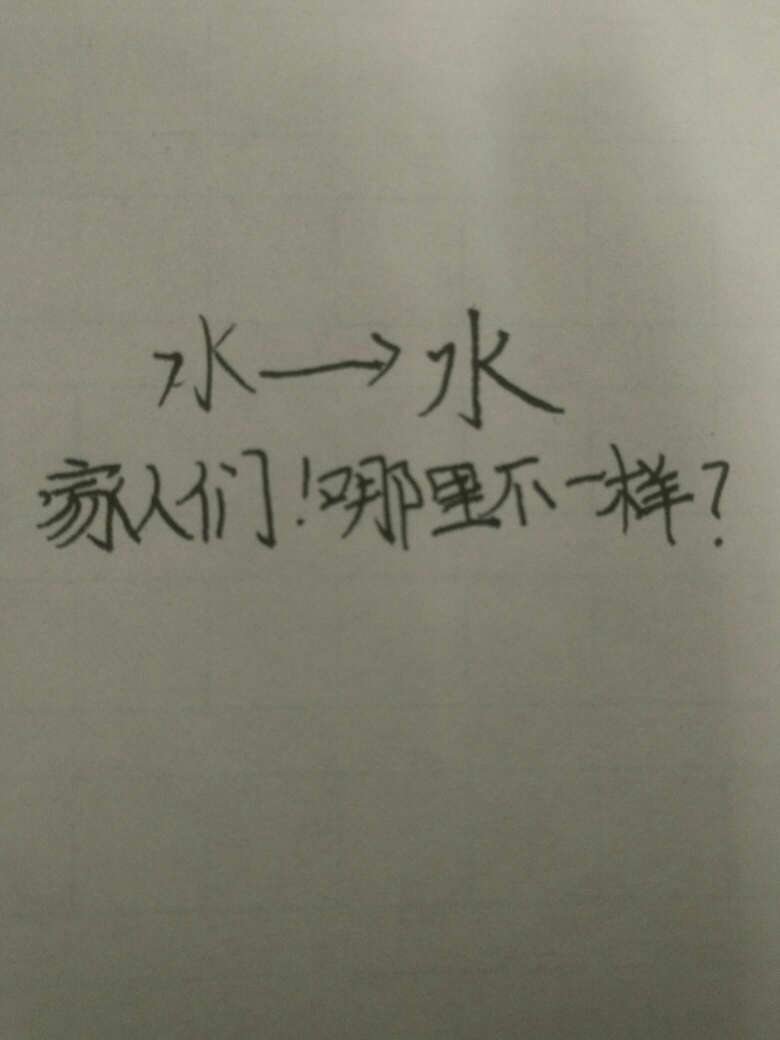 水→水
家人们!哪里不一样?